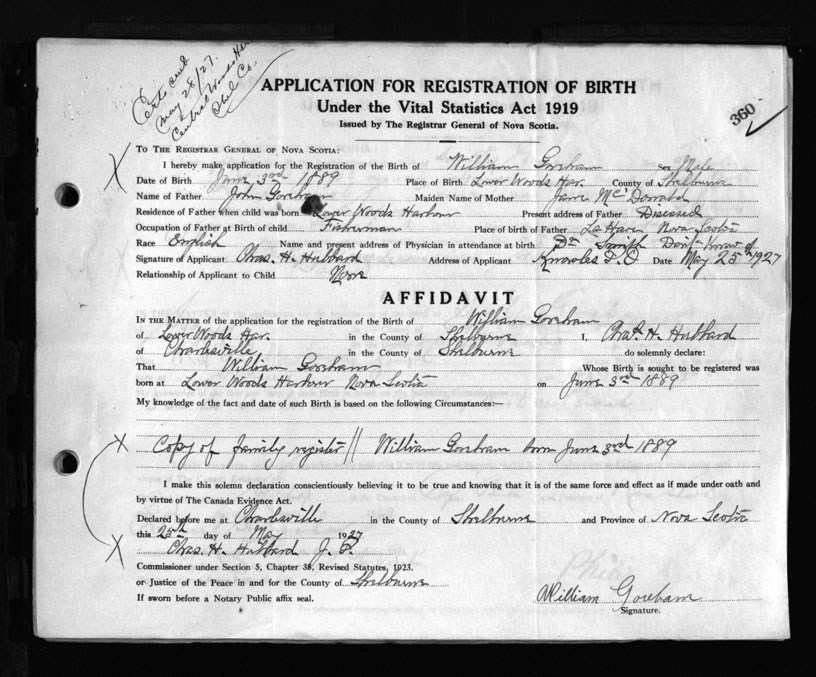 Certs sent
May 28/27.
Central Woods Har
Shel Co.
APPLICATION FOR REGISTRATION OF BIRTH
Under the Vital Statistics Act 1919
Issued by The Registrar General of Nova Scotia.
360
To The Registrar General of Nova Scotia:
I hereby make application for the Registration of the Birth of William Goreham Sex Male
Date of Birth June 3rd 1889 Place of Birth Lower Woods Har. County of Shelburne
Name of Father John Goreham Maiden Name of Mother Jane McDonald
Residence of Father when child was born Lower Woods Harbour Present address of Father Diseased
Occupation of Father at Birth of child Fisherman Place of birth of Father La Have Nova Scotia
Race English Name and present address of Physician in attendance at birth Dr Don't know of
Signature of Applicant Chas. H. Hubbard Address of Applicant Knowles P.O Date May 25th 1927
Relationship of Applicant to Child None
AFFIDAVIT
In the Matter of the application for the registration of the Birth of William Goreham
of Lower Woods Har. in the County of Shelburne I, Chas. H. Hubbard
of Charlesville in the County of Shelburne do solemnly declare:
That William Goreham Whose Birth is sought to be registered was
born at Lower Woods Harbour Nova Scotia on June 3rd 1889
My knowledge of the fact and date of such Birth is based on the following Circumstances:—
X Copy of family register // William Goreham born June 3rd 1889
I make this solemn declaration conscientiously believing it to be true and knowing that it is of the same force and effect as if made under oath and
by virtue of The Canada Evidence Act.
Declared before me at Charlesville in the County of Shelburne and Province of Nova Scotia
this 25th day of May 1927
X Chas. H. Hubbard J. P.
Commissioner under Section 5, Chapter 38, Revised Statutes, 1923.
or Justice of the Peace in and for the County of Shelburne
If sworn before a Notary Public affix seal.
William Goreham
Signature.